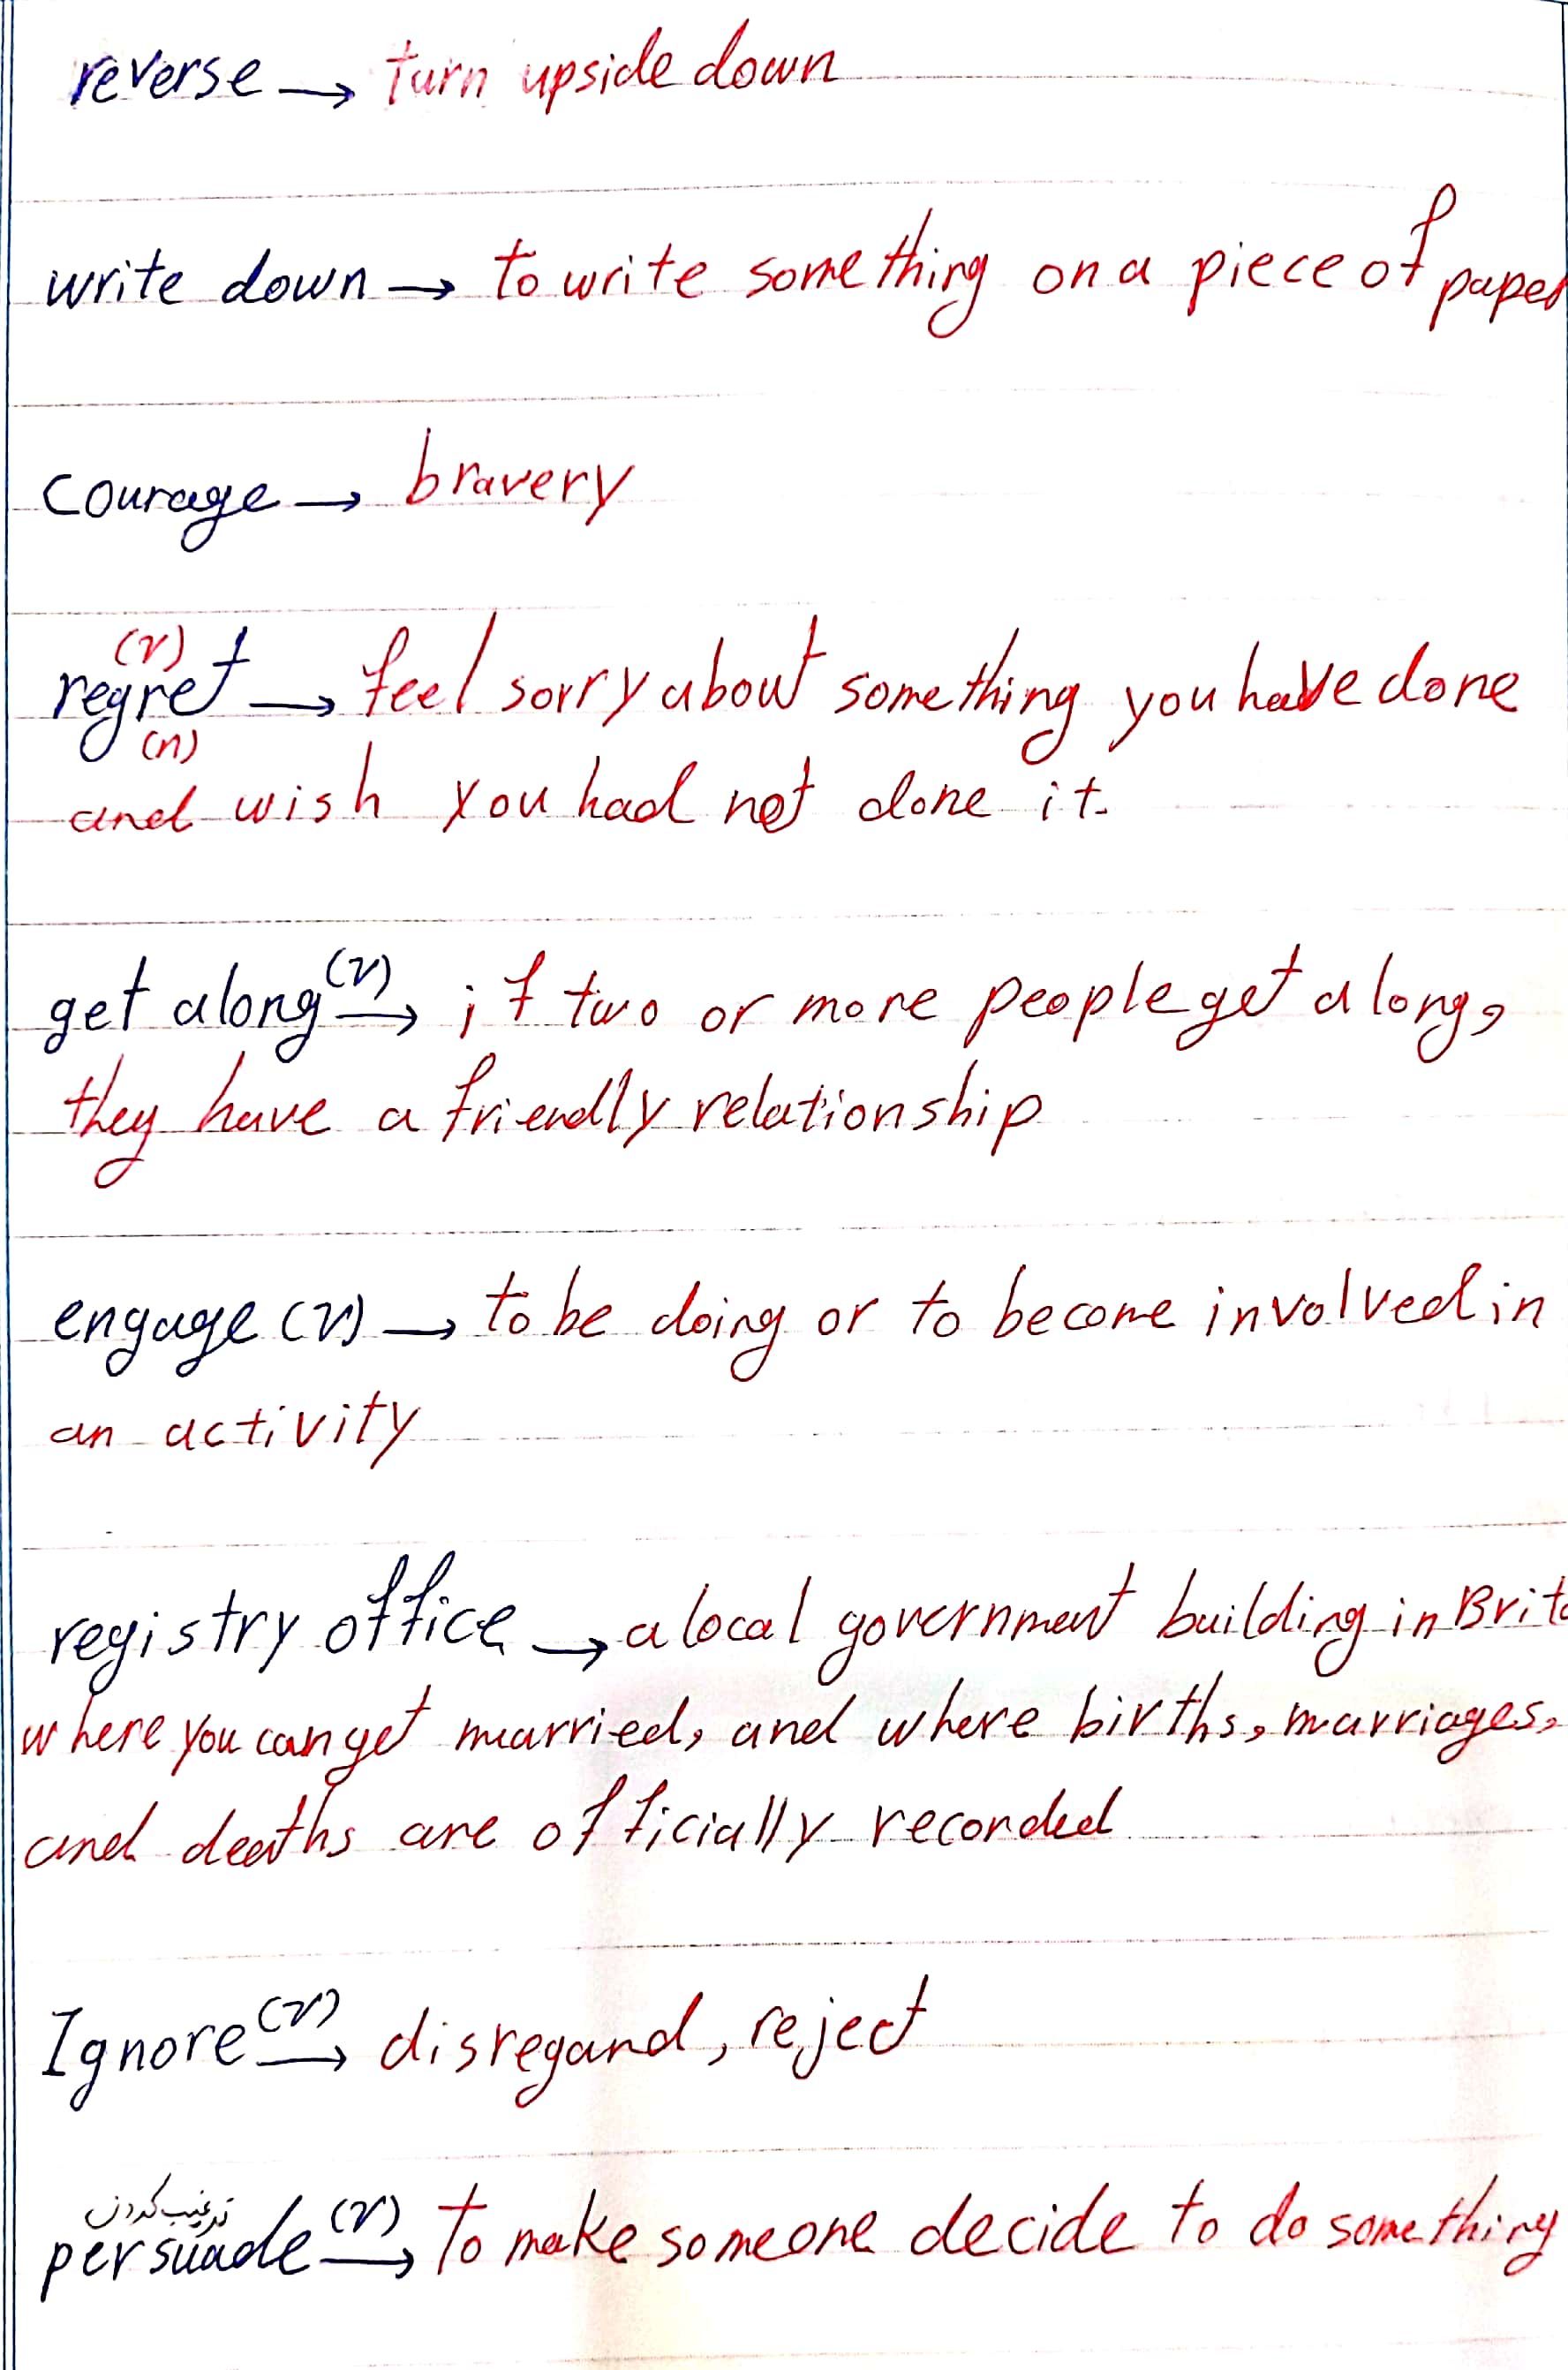 reverse → turn upside down
write down → to write something on a piece of paper
courage → bravery
(v)
regret → feel sorry about something you have done
(n)
and wish you had not done it.
get along (v) → if two or more people get along,
they have a friendly relationship
engage (v) → to be doing or to become involved in
an activity
registry office → a local government building in Brita
where you can get married, and where births, marriages,
and deaths are officially recorded
Ignore (v) → disregard, reject
ترغیب کردن
persuade (v) → to make someone decide to do something